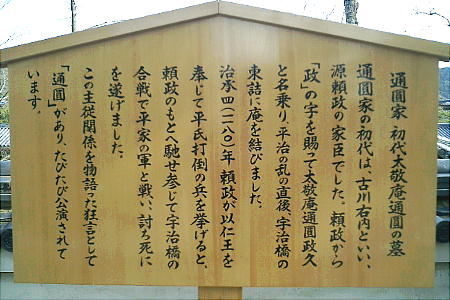 通圓家 初代太敬庵通圓の墓
通圓家の初代は、古川右内といい、
源頼政の家臣でした。頼政から
「政」の字を賜って太敬庵通圓政久
と名乗り、平治の乱の直後、宇治橋の
東詰に庵を結びました。
治承四(一一八〇)年 頼政が以仁王を
奉じて平氏打倒の兵を挙げると、
頼政のもとへ馳せ参じて宇治橋の
合戦で平家の軍と戦い、討ち死に
を遂げました。
この主従関係を物語った狂言として
「通圓」があり、たびたび公演されて
います。